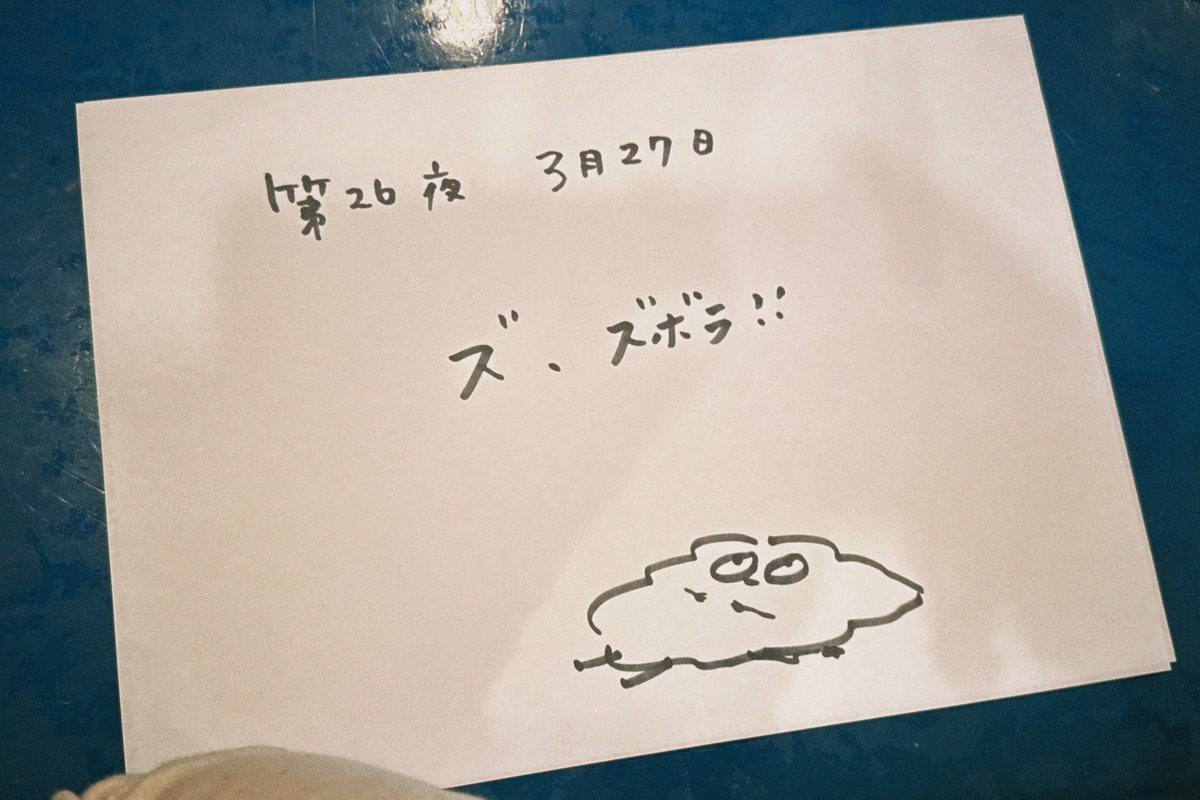 第26夜 3月27日
ズ、ズボラ!!